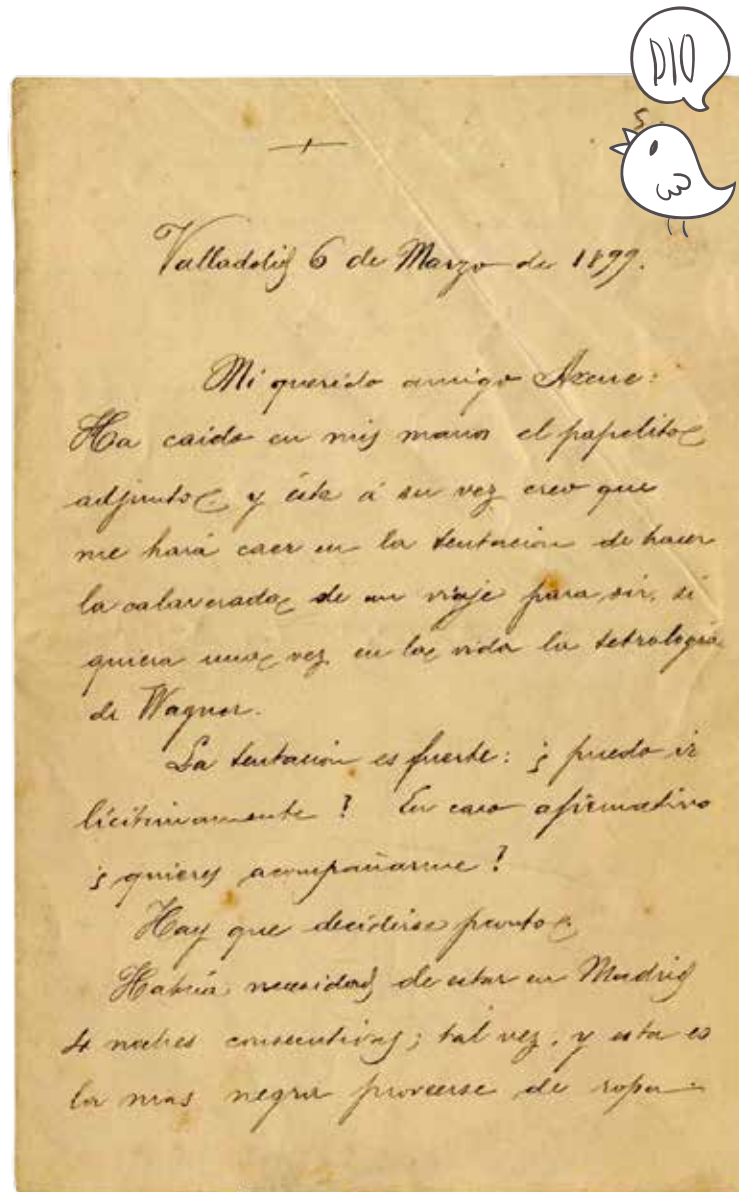 PIO
5
Valladolid 6 de Marzo de 1899.
Mi querido amigo Azcue:
Ha caido en mis manos el papelito
adjunto y éste á su vez creo que
me hará caer en la tentación de hacer
la calaverada de un viaje para oir, si
quiera una vez en la vida la tetralogía
de Wagner.
La tentación es fuerte: ¿puedo ir
licitisimamente? En caso afirmativo
¿quieres acompañarme?
Hay que decidirse pronto.
Habría necesidad de estar en Madrid
4 noches consecutivas; tal vez, y esta es
la mas negra proveerse de ropa